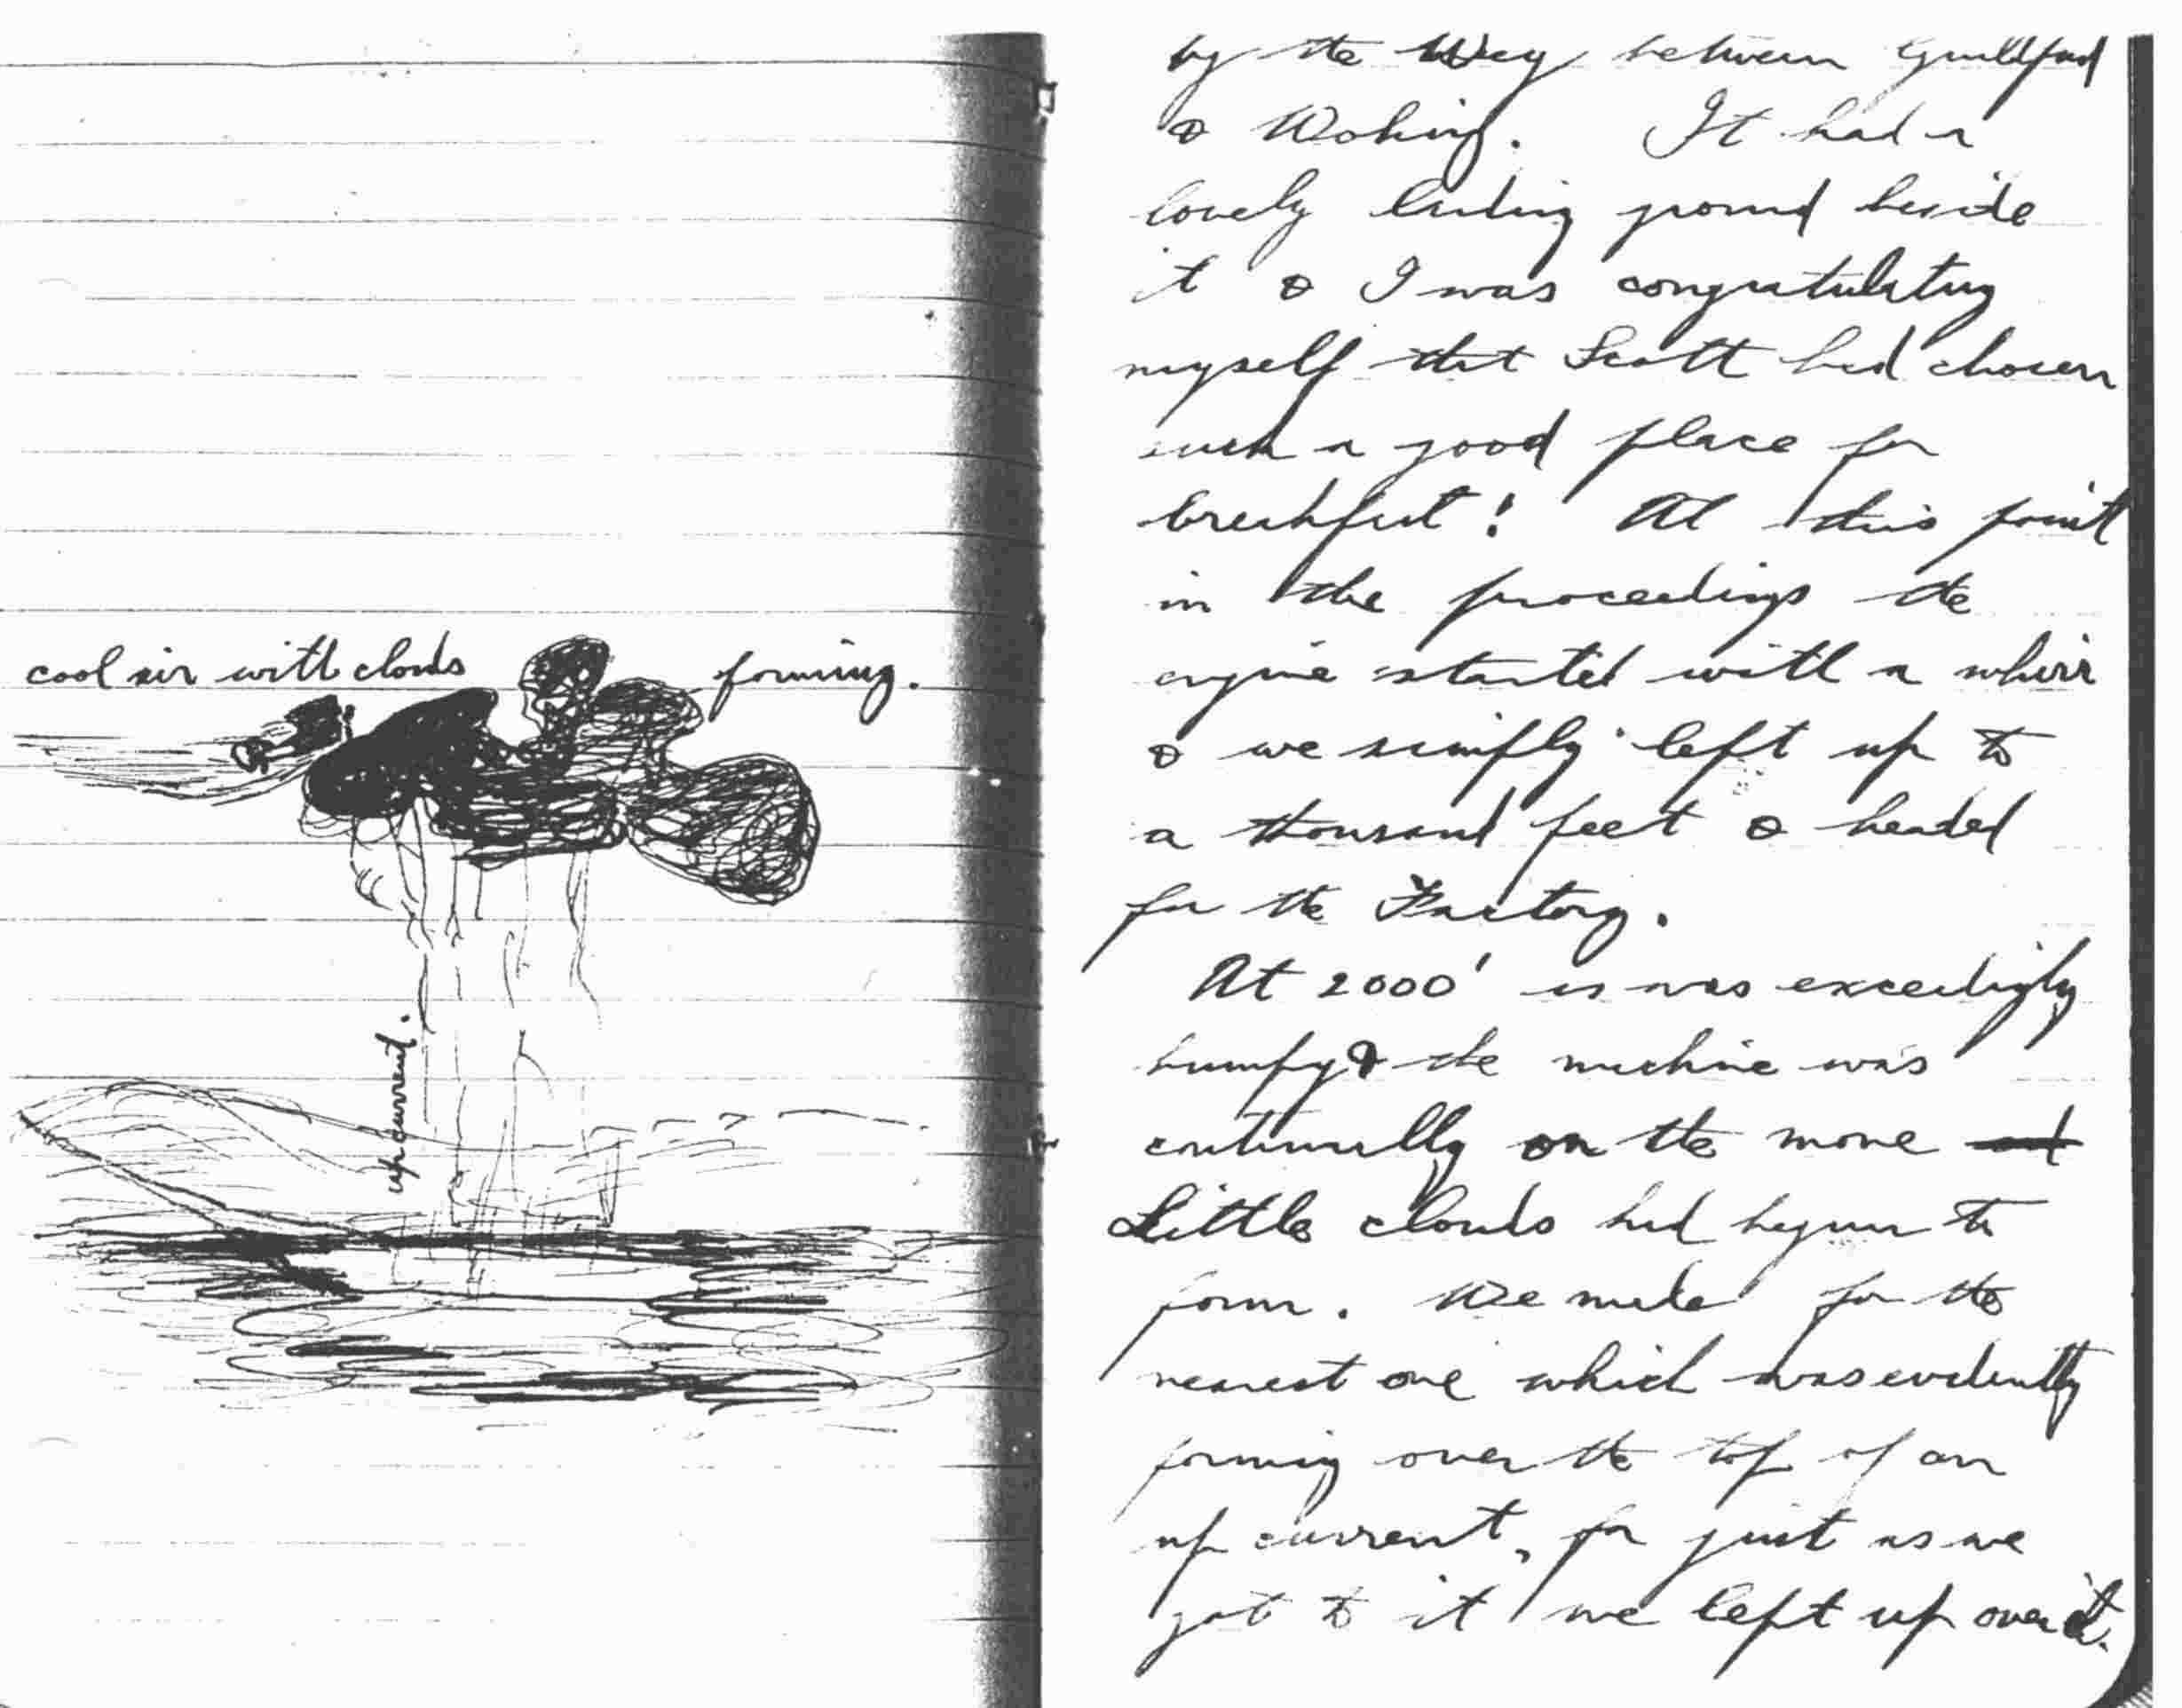 cool air with clouds forming.
up current.
by the Wey between Guildford
& Woking. It had a
lovely landing ground beside
it & I was congratulating
myself that Scott had chosen
such a good place for
breakfast! At this point
in the proceedings the
engine started with a whirr
& we simply left up to
a thousand feet & headed
for the Factory.
At 2000' is was exceedingly
bumpy & the machine was
continually on the move and
Little clouds had begun to
form. We made for the
nearest one which was evidently
forming over the top of an
up current, for just as we
got to it we left up over it.